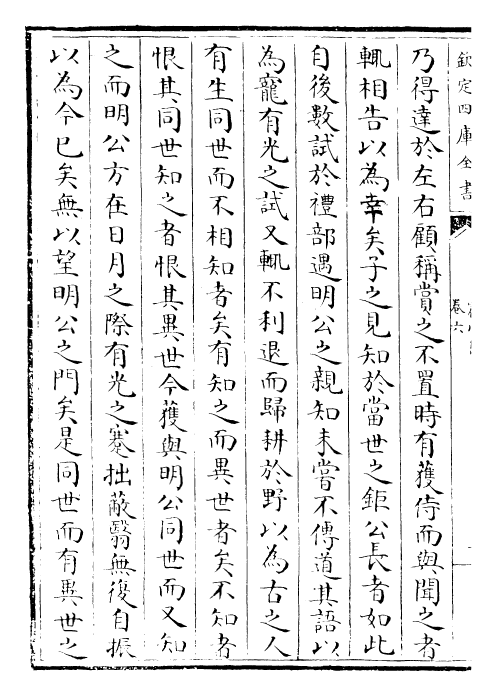 欽定四庫全書
卷六
乃得達於左右顧稱賞之不置時有獲侍而與聞之者
輒相告以為幸矣子之見知於當世之鉅公長者如此
自後數試於禮部遇明公之親知未嘗不傳道其語以
為寵有光之試又輒不利退而歸耕於野以為古之人
有生同世而不相知者矣有知之而異世者矣不知者
恨其同世知之者恨其異世今獲與明公同世而又知
之而明公方在日月之際有光之蹇拙蔽翳無復自振
以為今已矣無以望明公之門矣是同世而有異世之